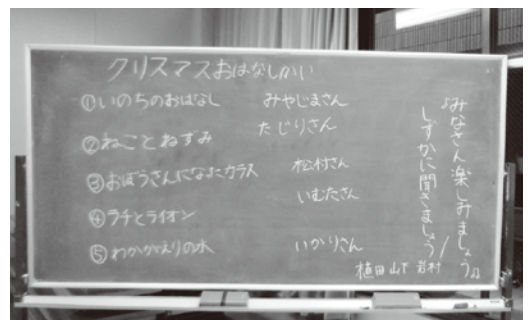 クリスマスおはなしかい
①いのちのおはなし みやじまさん
②ねことねずみ たじりさん
③おぼうさんになったカラス 松村さん
④ラチとライオン いむたさん
⑤わかがえりの水 いかりさん
♪みなさん楽しみましょう♫
しずかに聞きましょう/
植田 山下 岩村